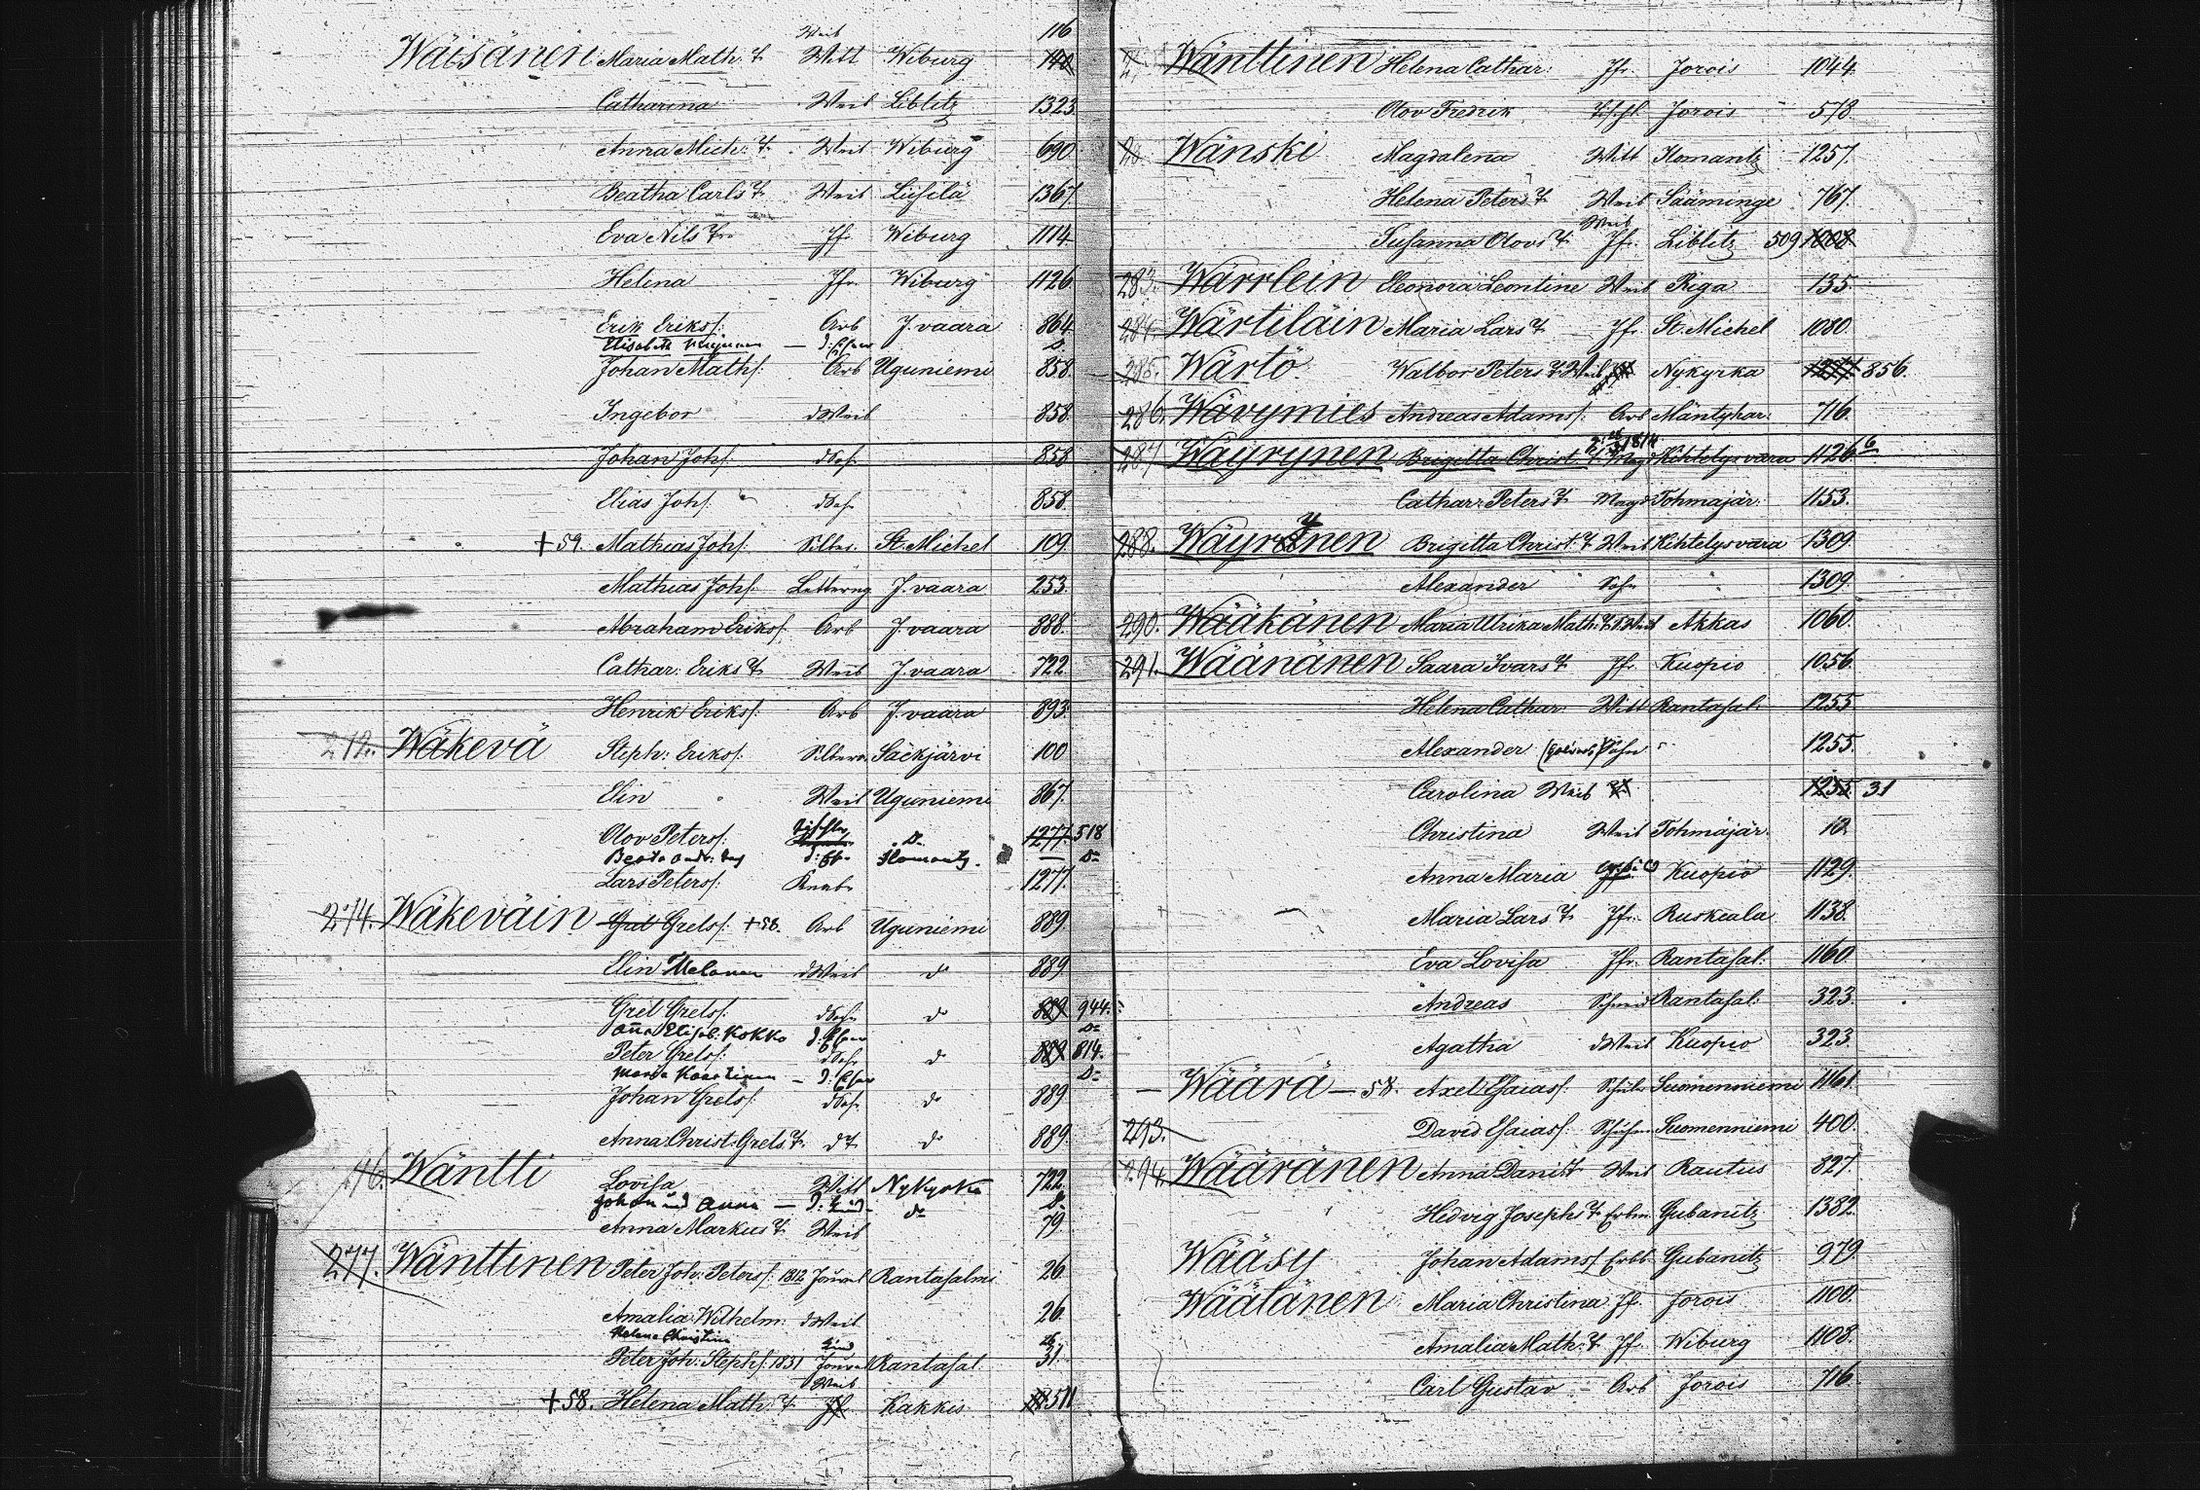 Weib 116
Wäisänen Maria Math: T. Witt Wiburg 140
Catharina Weib Liblitz 1323
Anna Mich: T. Weib Wiburg 690
Beatha Carls T. Weib Liisilä 1367
Eva Nils T. Jfr. Wiburg 1114
Helena Jfr. Wiburg 1126
Erik Eriks/: Arb J. vaara 864
Elisabeth
Johan Maths/: Arb Uguniemi 858
Ingebor dWeib 858
Johan Johs/: dSohn 858
Elias Johs/: dSohn 858
+59. Mathias Johs/: Silber. St. Michel 109
Mathias Johs/: J. vaara 253
Abraham Eriks/: Arb J. vaara 888
Cathar: Eriks T. Weib J. vaara 722
Henrik Eriks/: Arb J. vaara 893
272. Wäkevä Steph: Eriks/: Silbera. Säckjärvi 100
Elin Weib Uguniemi 867
Olov Peters/: Tischler D- 1277. 518
Beata Andr: Ilomantz. D-
Lars Peters/: Knabe 1277.
274. Wäkeväin Grel Grels/: +58. Arb Uguniemi 889
Elin dWeib do 889
Grel Grels/: dSohn do 889 944
Anna Elisab: Kokko D-
Peter Grels/: dSohn do 889 814
Maria D-
Johan Grels/: dSohn do 889
Anna Christ: Grels T. dT. do 889
Wäntti Lovisa Witt Nykyrka 722
Johan und Anna do D-
Anna Markus T. Weib 79
277. Wänttinen Peter Joh: Peters/: 1812 Juvel Rantasalmi 26
Amalia Wilhelm: dWeib 26
Helena Christina Kind 26
Peter Joh: Stephs/: 1831 Juvel Rantasal: 31
Weib
+58. Helena Math: T. Jfr Kakkis 511
Wänttinen Helena Cathar: Jfr. Jorois 1044
Olov Fredrik Jorois 578
Wänski Magdalena Witt Ilomantz 1257
Helena Peters T. Weib Sääminge 767
Weib
Susanna Olovs T. Jfr. Liblitz 509 1008
283. Wärrlein Eleonora Leontine Weib Riga 135
284. Wärtiläin Maria Lars T. Jfr. St. Michel 1080
285. Wärtö Walbor Peters T. Weib Nykyrka 856.
286. Wävymies Andreas Adams/: Arb Mäntyhar: 716
287. Wäyrynen Brigitta Christ: T. Magd Kihtelysvara 1126
Cathar: Peters T. Magd Tohmajär: 1153
288. Wäyrynen Brigitta Christ: T. Weib Kihtelysvara 1309
Alexander Sohn 1309
290. Wääkänen Maria Ulrika Math: T. Weib Akkas 1060
291. Väänänen Saara Ivars T. Jfr. Kuopio 1056
Helena Cathar: Witt Rantasal: 1255
Alexander Sohn 1255
Carolina Weib 1255 31
Christina Weib Tohmäjär: 12
Anna Maria Jfr. Kuopio 1129
Maria Lars T. Jfr. Ruskeala 1138
Eva Lovisa Jfr. Rantasal: 1160
Andreas Schmid Rantasal: 323
Agatha dWeib Kuopio 323
Wäärä -58. Axel Esaias/: Schuhm Suomenniemi 1161
293. David Esaias/: Schuhm Suomenniemi 400
294. Wääränen Anna Danis T. Weib Rautus 827
Hedvig Josephs T. Erbn Gubanitz 1382
Wääsy Johan Adams/: Erbb Gubanitz 979
Väätänen Maria Christina Jfr. Jorois 1100
Amalia Math: T. Jfr. Wiburg 1108
Carl Gustav Arb Jorois 716